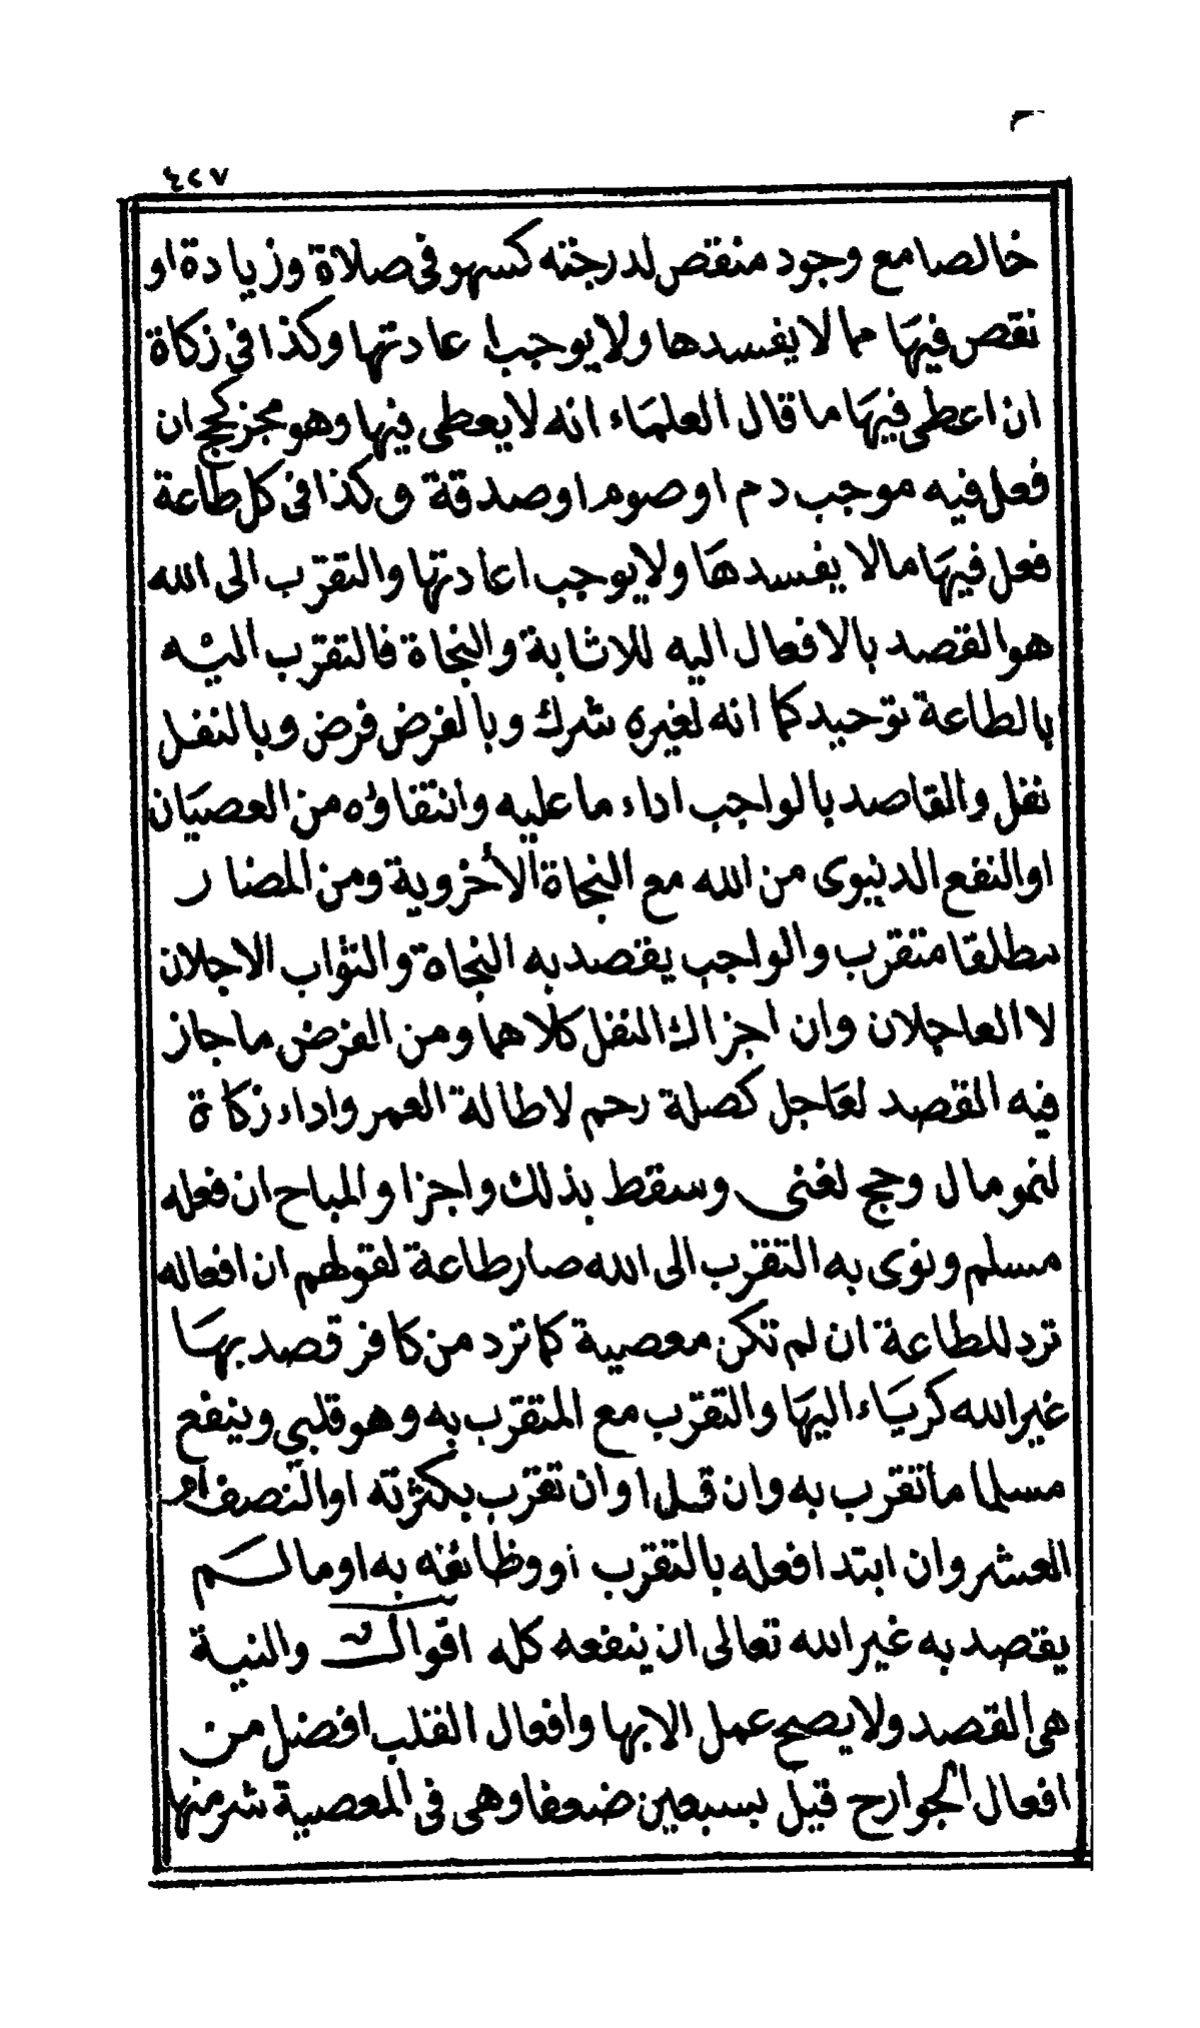 ٤٢٧
خالصا مع وجود منقص لدرجته كسهو فى صلاة وزيادة او
نقص فيها مما لا يفسدها ولا يوجب اعادتها وكذا فى زكاة
ان اعطى فيها ما قال العلماء انه لا يعطى فيها وهو مجز كحج ان
فعل فيه موجب دم او صوم او صدقة وكذا فى كل طاعة
فعل فيها ما لا يفسدها ولا يوجب اعادتها والتقرب الى الله
هو القصد بالافعال اليه للاثابة والنجاة فالتقرب اليه
بالطاعة توحيد كما انه لغيره شرك وبالفرض فرض وبالنفل
نفل والقاصد بالواجب اداء ما عليه وانتفاؤه من العصيان
او النفع الدنيوى من الله مع النجاة الأخروية ومن المضار
مطلقا متقرب والواجب يقصد به النجاة والثواب الاجلان
لا العاجلان وان اجزاك النفل كلاهما ومن الفرض ما جاز
فيه القصد لعاجل كصلة رحم لاطالة العمر واداء زكاة
لنمو مال وحج لغنى وسقط بذلك واجزا والمباح ان فعله
مسلم ونوى به التقرب الى الله صار طاعة لقولهم ان افعاله
ترد للطاعة ان لم تكن معصية كما ترد من كافر قصد بها
غير الله كرياء اليها والتقرب مع المتقرب به وهو قلبي وينفع
مسلما ما تقرب به وان قل او ان تقرب بكثرته او النصف او
العشر وان ابتدا فعله بالتقرب او وظائفه به او ما لم
يقصد به غير الله تعالى ان ينفعه كله اقوال والنية
هى القصد ولا يصح عمل الا بها وافعال القلب افضل من
افعال الجوارح قيل بسبعين ضعفا وهى فى المعصية شر منها